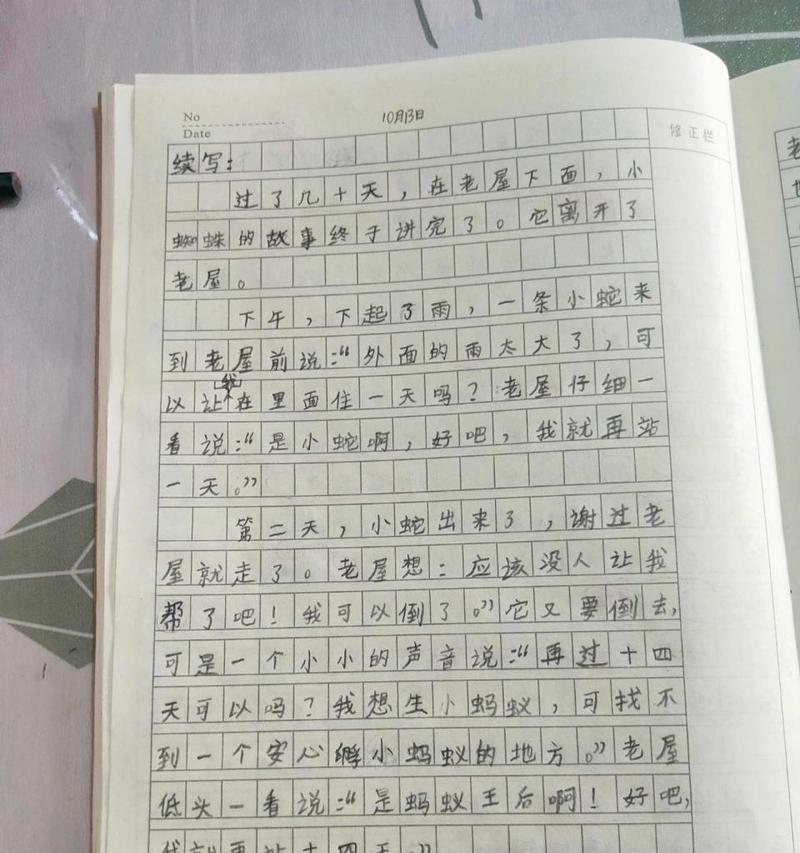 No
10月13日
Date
修正栏
续写：
过了几十天，在老屋下面，小
蜘蛛的故事终于讲完了。它离开了
老屋。
下午，下起了雨，一条小蛇来
到老屋前说：“外面的雨太大了，可
以让我在里面住一天吗？老屋仔细一
看说：“是小蛇啊，好吧，我就再站
一天。”
第二天，小蛇出来了，谢过老
屋就走了。老屋想：应该没人让我
帮了吧！我可以倒了。”它又要倒去，
可是一个小小的声音说：“再过十四
天可以吗？我想生小蚂蚁，可找不
到一个安心孵小蚂蚁的地方。”老屋
低头一看说：“是蚂蚁王后啊！好吧，
我就再站十四天。”
老